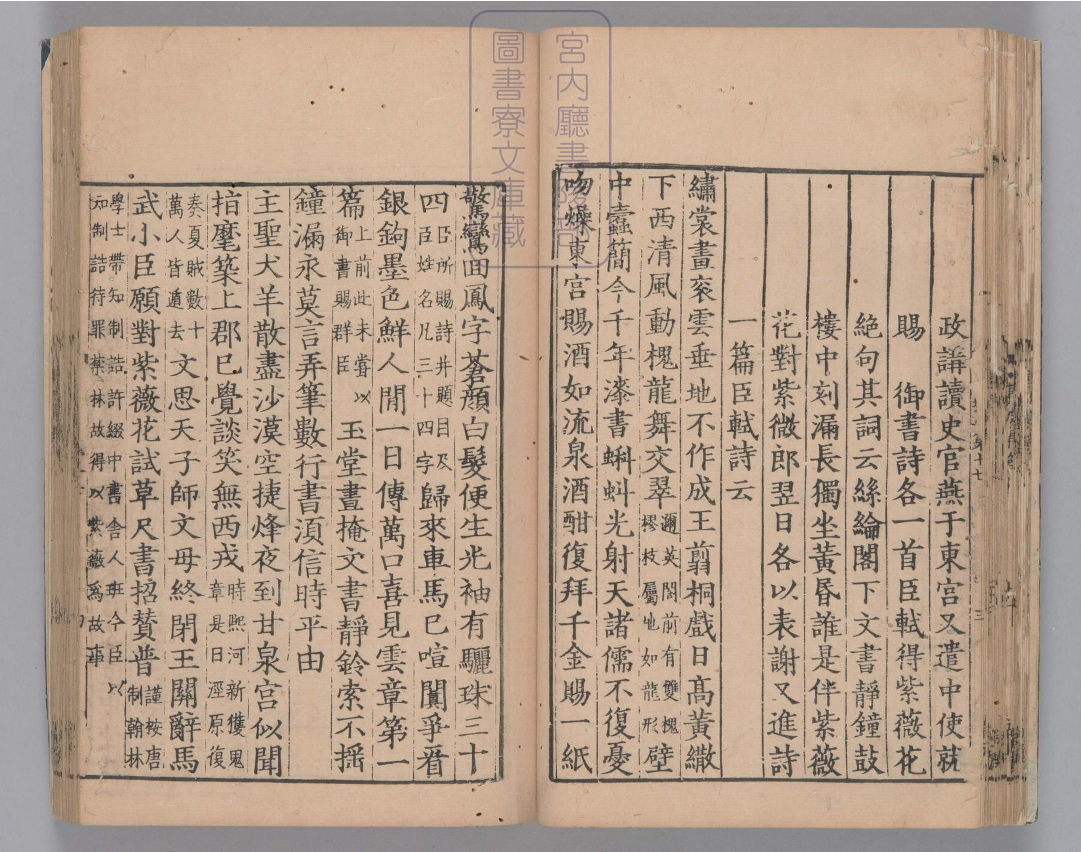 政講讀史官燕于東宮又遣中使就
賜　御書詩各一首臣軾得紫薇花
絕句其詞云絲綸閣下文書靜鐘鼓
樓中刻漏長獨坐黃昏誰是伴紫薇
花對紫微郎翌日各以表謝又進詩
一篇臣軾詩云
繡裳畫衮雲垂地不作成王翦桐戲日高黃繖
下西清風動槐龍舞交翠邇英閣前有雙槐樛枝屬地如龍形壁
中蠹簡今千年漆書蝌蚪光射天諸儒不復憂
吻燥東宮賜酒如流泉酒酣復拜千金賜一紙
驚鸞回鳳字蒼顏白髮便生光袖有驪珠三十
四臣所賜詩并題目及臣姓名凡三十四字歸來車馬已喧闐爭看
銀鉤墨色鮮人間一日傳萬口喜見雲章第一
篇上前此未嘗以御書賜群臣玉堂晝掩文書靜鈴索不搖
鐘漏永莫言弄筆數行書須信時平由
主聖犬羊散盡沙漠空捷烽夜到甘泉宮似聞
指麾築上郡已覺談笑無西戎時熙河新獲鬼章是日涇原復
奏夏賊數十萬人皆遁去文思天子師文母終閉玉關辭馬
武小臣願對紫薇花試草尺書招贊普謹按唐制翰林
學士帶知制誥許綴中書舍人班今臣以
知制誥待罪禁林故得以紫薇爲故事
宮內廳書陵部
圖書寮文庫藏